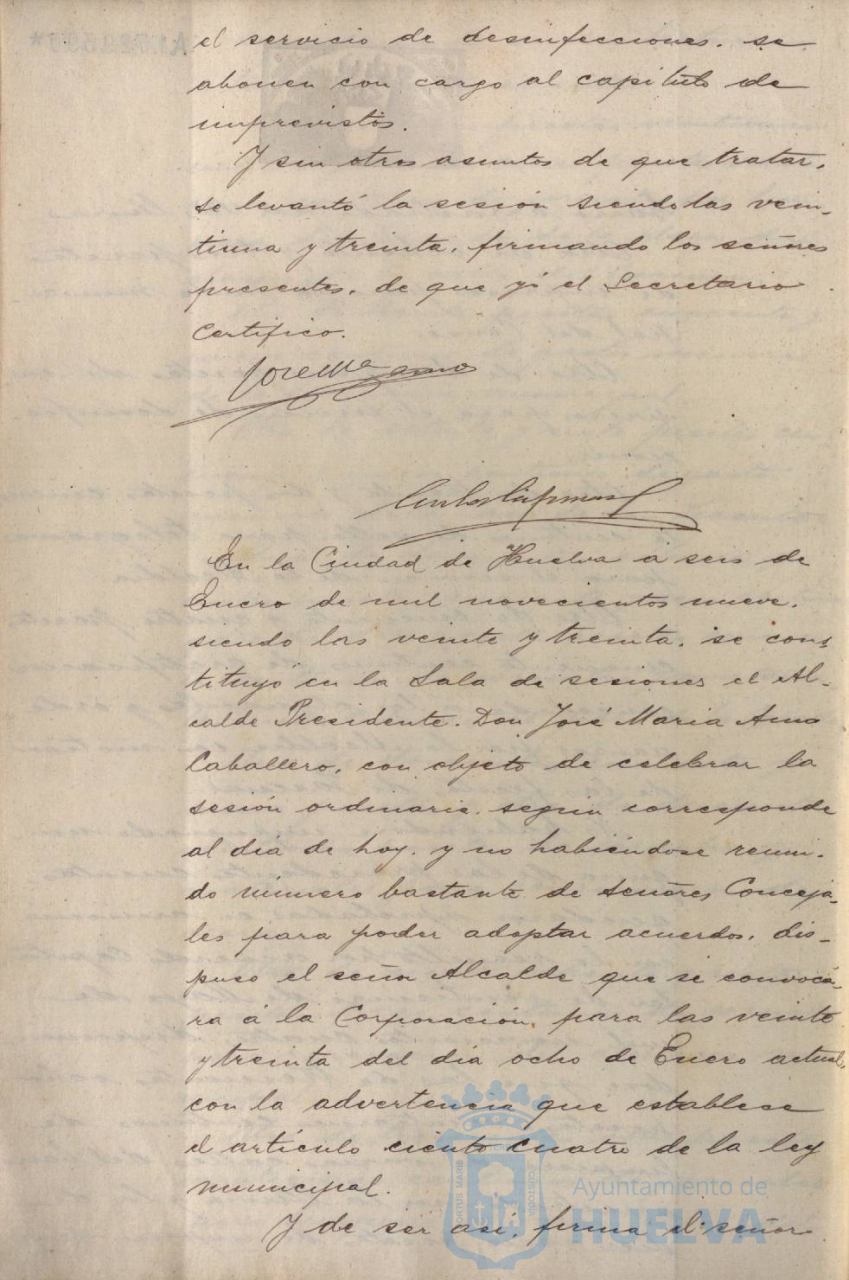 el servicio de desinfecciones, se
abonen con cargo al capítulo de
imprevistos.
Y sin otros asuntos de que tratar,
se levantó la sesión siendo las vein-
tiuna y treinta, firmando los señores
presentes, de que yó el Secretario
certifico.
José Mª Amo
En la Ciudad de Huelva á seis de
Enero de mil novecientos nueve,
siendo las veinte y treinta, se cons
tituyó en la Sala de sesiones el Al-
calde Presidente, Don José Maria Amo
Caballero, con objeto de celebrar la
sesión ordinaria, según corresponde
al dia de hoy, y no habiéndose reuni-
do número bastante de señores Conceja-
les para poder adoptar acuerdos, dis-
puso el señor Alcalde que se convocá-
ra á la Corporación, para las veinte
y treinta del dia ocho de Enero actual,
con la advertencia que establece
el artículo ciento cuatro de la ley
municipal.
Y de ser asi, firma el señor
Ayuntamiento de
HUELVA